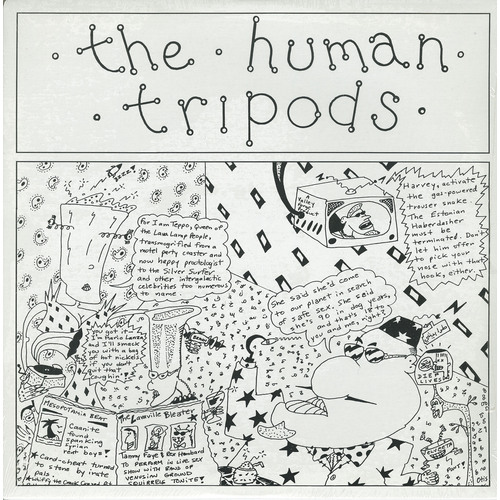 the human
tripods
For I am Teppo, Queen of
the Lava Lamp People,
transmogrified from a
motel party coaster and
now happy proctologist
to the Silver Surfer
and other intergalactic
celebrities too numerous
to name.
Harvey, activate
the gas-powered
trouser snake.
The Estonian
Haberdasher
must be
terminated. Don't
let him offer
to pick your
nose with that
hook, either.
You got it
I'm Mario Lanza
and I'll smack
you with a bag
of hot nickels
if you don't
quit that
laughin'
She said she'd come
to our planet in search
of safe sex. She said
she's 126 in dog years,
and that's 18 to
you and me, right?
LIVES!
MESOPOTAMIA BEAT
Canaanite
found
spanking
Syrian
rent boys!
Card-cheat turned
to stone by irate
pals.
The Lavaville Bleater
Tammy Faye & Rex Humbard
TO PERFORM IN LIVE SEX
SHOW WITH RAWG OF
VENUSIAN GROUND
SQUIRRELS TONITE!
Otis